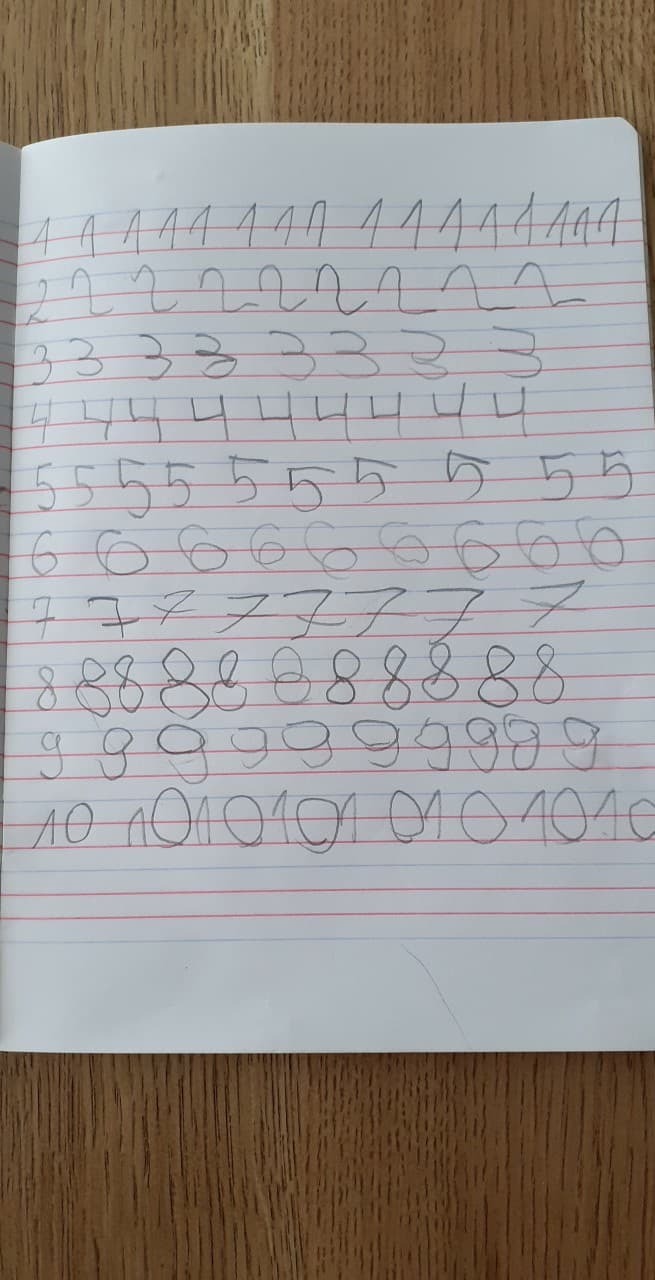 1 1 1 1 1 1 1 1 1 1 1 1 1 1 1 1
2 2 2 2 2 2 2 2 2
3 3 3 3 3 3 3 3
4 4 4 4 4 4 4 4 4
5 5 5 5 5 5 5 5 5 5
6 6 6 6 6 6 6 6 6
7 7 7 7 7 7 7 7
8 8 8 8 8 8 8 8 8 8 8
9 9 9 9 9 9 9 9 9 9
10 10 10 10 10 10 10 10